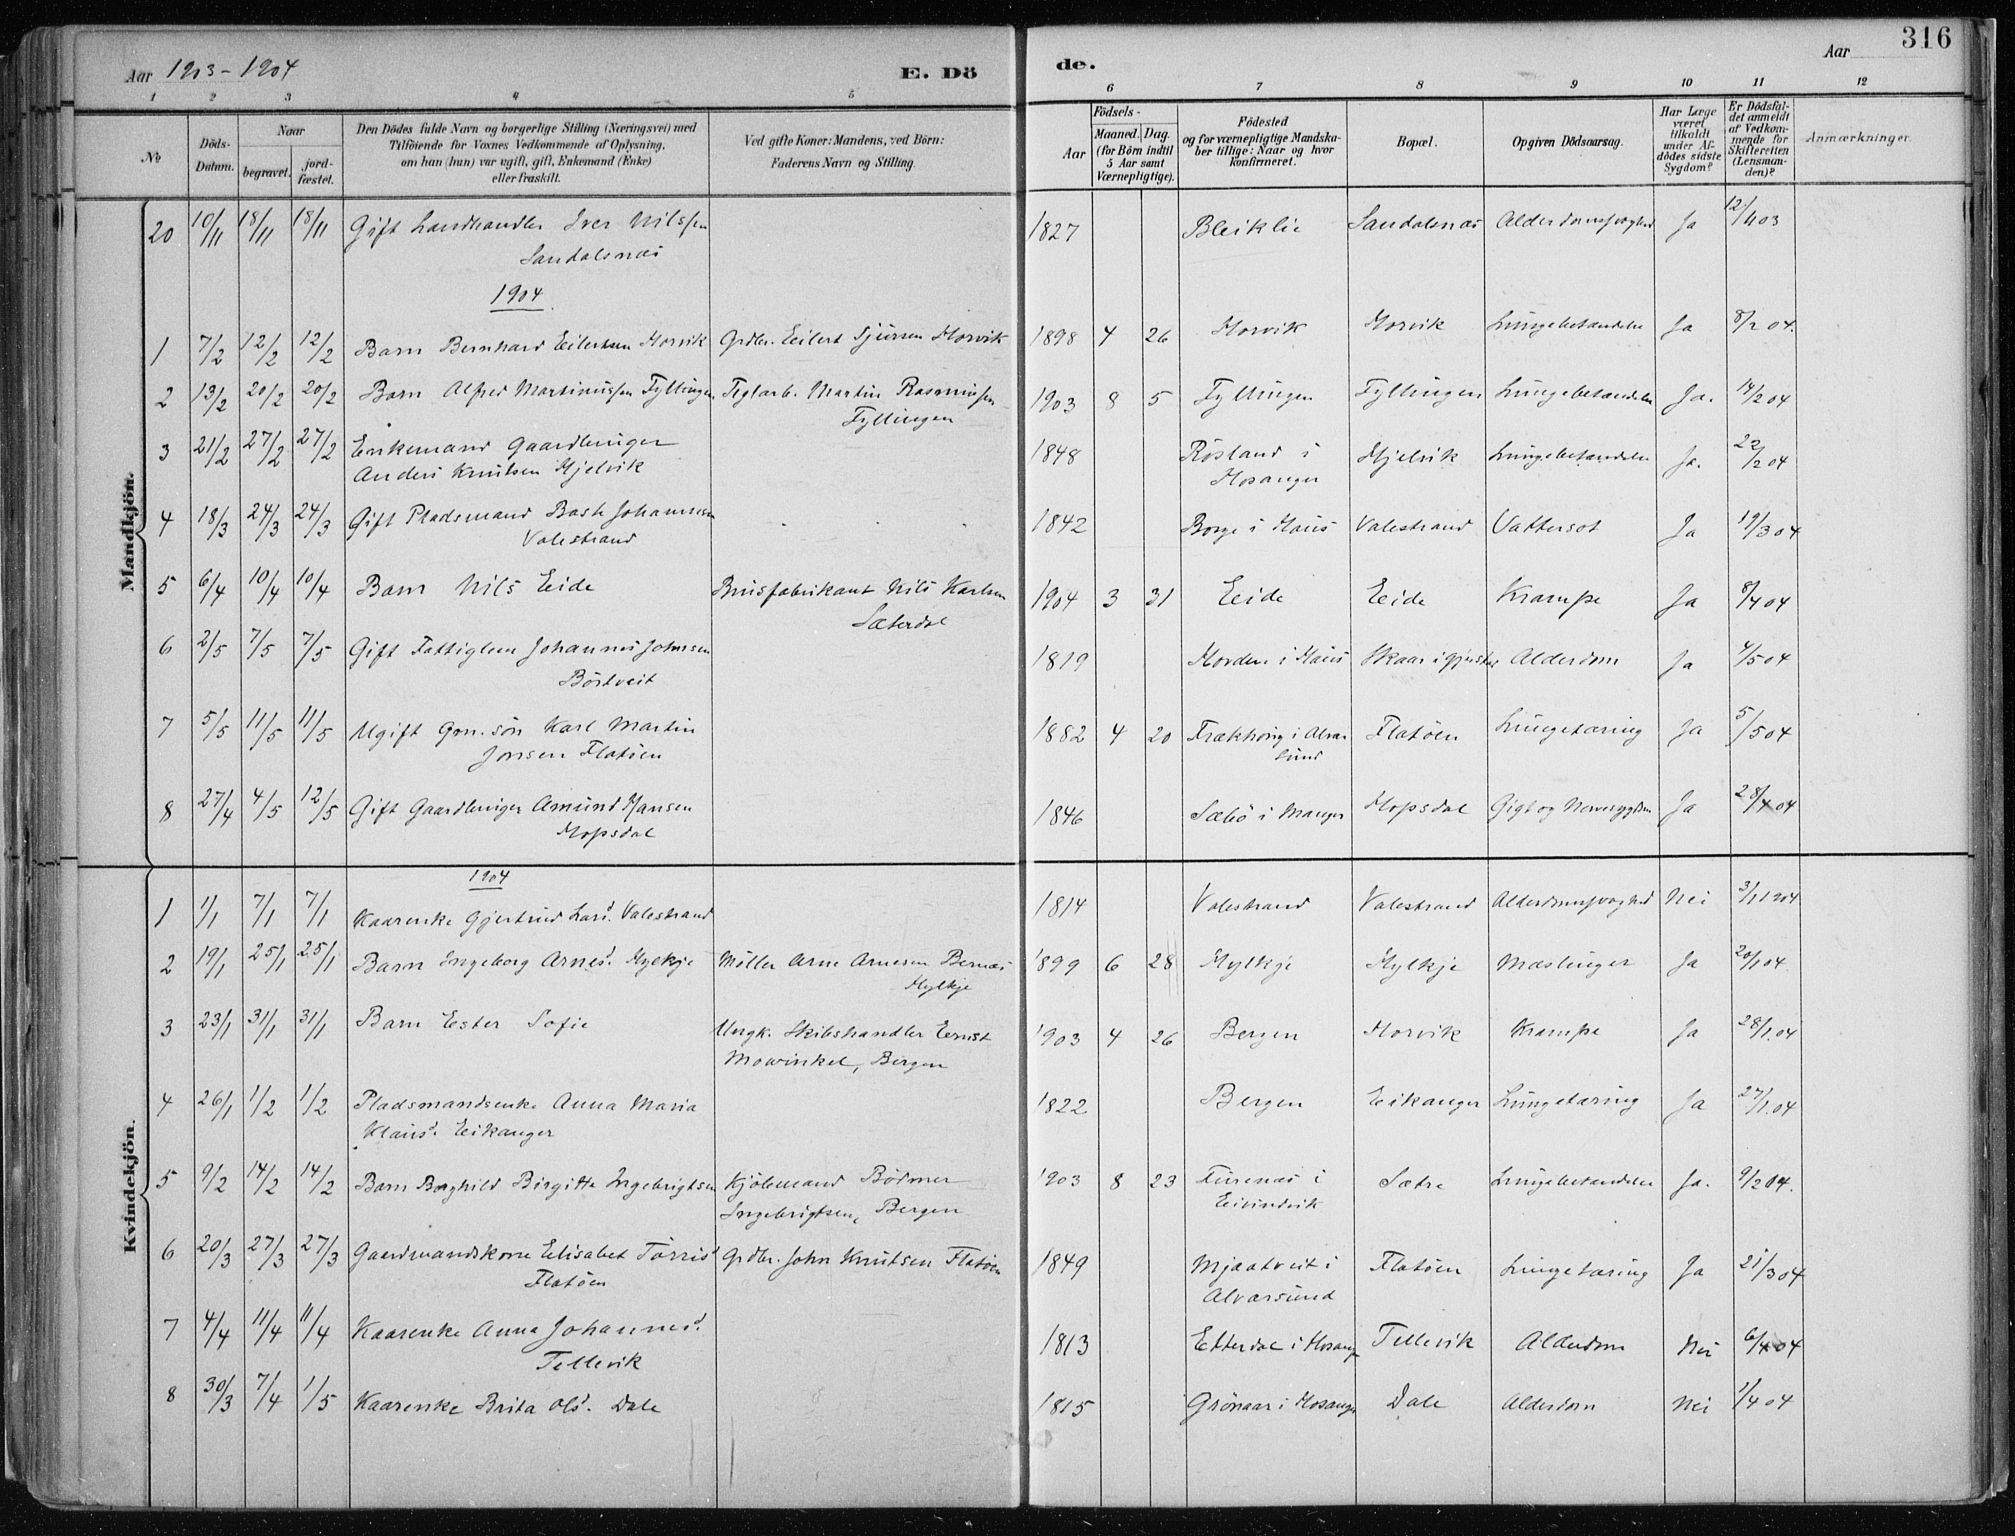 316
Aar 1903-1904
E. Dö
de.
Aar
1 2 3 4 5 6 7 8 9 10 11 12
No
Döds-Datum.
Naar
begravet.
jord-fæstet.
Den Dödes fulde Navn og borgerlige Stilling (Næringsvei) med
Tilföiende for Voxnes Vedkommende af Oplysning,
om han (hun) var ugift, gift, Enkemand (Enke)
eller fraskilt.
Ved gifte Koner: Mandens, ved Börn:
Faderens Navn og Stilling.
Födsels-
Aar
Maaned. Dag.
(for Börn indtil
5 Aar samt
Værnepligtige).
Födested
og for værnepligtige Mandska-
ber tillige: Naar og hvor
konfirmeret.
Bopæl.
Opgiven Dödsaarsag.
Har Læge
været
tilkaldt
under Af-
dödes sidste
Sygdom?
Er Dödsfal-
det anmeldt
af Vedkom-
mende for
Skifteretten
(Lensman-
den)?
Anmærkninger.
Mandkjön.
20 10/11 18/11 18/11 Gift Landhandler Iver Nilssen 1827 Bleiklie Sandalsnæs Alderdomssvaghed Ja 12/1103
Sandalsnæs
1904
1 7/2 12/2 12/2 Barn Bernhard Eilertsen Morvik Grdbr. Eilert Sjursen Morvik 1898 4 26 Morvik Morvik Lungebetændelse Ja 8/2 04.
2 13/2 20/2 20/2 Barn Alfred Martinussen Fyllingen Teglarb. Martin Rasmussen 1903 8 5 Fyllingen Fyllingen Lungebetændelse Ja. 14/2 04
Fyllingen
3 21/2 27/2 27/2 Enkemand Gaardbruger 1848 Røsland i Hjelvik Lungebetændelse Ja. 22/2 04
Anders Knutsen Hjelvik Hosanger
4 18/3 24/3 24/3 Gift Pladsmand Bast Johannesen 1842 Borge i Haus Valestrand Vattersot Ja 19/3 04
Valestrand
5 6/4 10/4 10/4 Barn Nils Eide Brusfabrikant Nils Karlsen 1904 3 31 Eide Eide Krampe Ja 8/4 04
Sæterdal
6 2/5 7/5 7/5 Gift Fattiglem Johannes Johnsen 1819 Horden i Haus Skaar i Alderdom Ja 4/5 04
Börtveit
7 5/5 11/5 11/5 Ugift Grn. sön Karl Martin 1882 4 20 Frækhaug i Alver Flatöen Lungetæring Ja 5/5 04
Jonsen Flatöen sund
8 27/4 4/5 12/5 Gift Gaardbruger Amund Hansen 1846 Sæbö i Manger Hopsdal Gigt og Nervesygdom Ja 28/4 04
Hopsdal
Kvindekjön.
1904
1 1/1 7/1 7/1 Kaarenke Gjertrud Larsd. Valestrand 1814 Valestrand Valestrand Alderdomssvaghed Nei 3/1 1904
2 19/1 25/1 25/1 Barn Ingeborg Arnesd. Hylkje Möller Arne Arnesen Bernæs 1899 6 28 Hylkje Hylkje Mæslinger Ja 20/1 04.
Hylkje
3 23/1 31/1 31/1 Barn Ester Sofie Ungk. Skibshandler Ernst 1903 4 26 Bergen Morvik Krampe Ja 28/1.04
Mowinkel, Bergen
4 26/1 1/2 1/2 Pladsmandsenke Anna Maria 1822 Bergen Eikanger Lungetæring Ja 27/1.04
Klausd. Eikanger
5 9/2 14/2 14/2 Barn Borghild Birgitte Ingebrigtsen Kjölemand Bödmer 1903 8 23 Furenæs i Sætre Lungebetændelse Ja. 9/2 04.
Ingebrigtsen, Bergen Eivindvik
6 20/3 27/3 27/3 Gaardmandskone Elisabet Torrisd. Grdbr. John Knutsen Flatöen 1849 Mjaatveit i Flatöen Lungetæring Ja 21/3 04
Flatöen Alversund
7 4/4 11/4 11/4 Kaarenke Anna Johannesd. 1813 Etterdal i Hosanger Tellevik Alderdom Nei 6/4 04
Tellevik
8 30/3 7/4 1/5 Kaarenke Brita Olsd. Dale 1815 Grönaas i Hosanger Dale Alderdom Nei 1/4 04